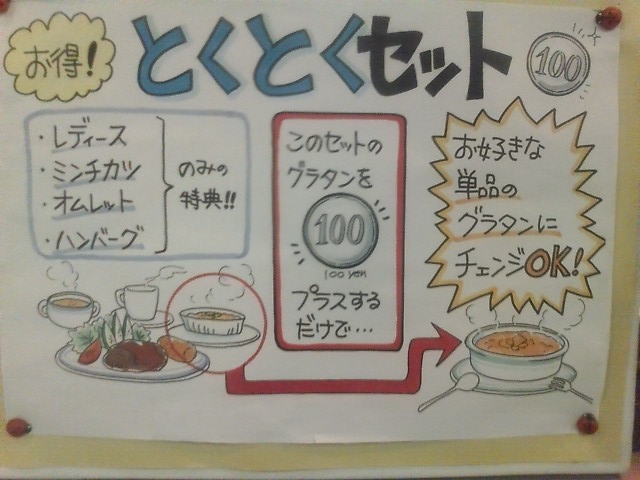 お得!
とくとくセット
100
・レディース
・ミンチカツ
・オムレット
・ハンバーグ
のみの
特典!!
このセットの
グラタンを
100
100 yen
プラスする
だけで…
お好きな
単品の
グラタンに
チェンジOK!